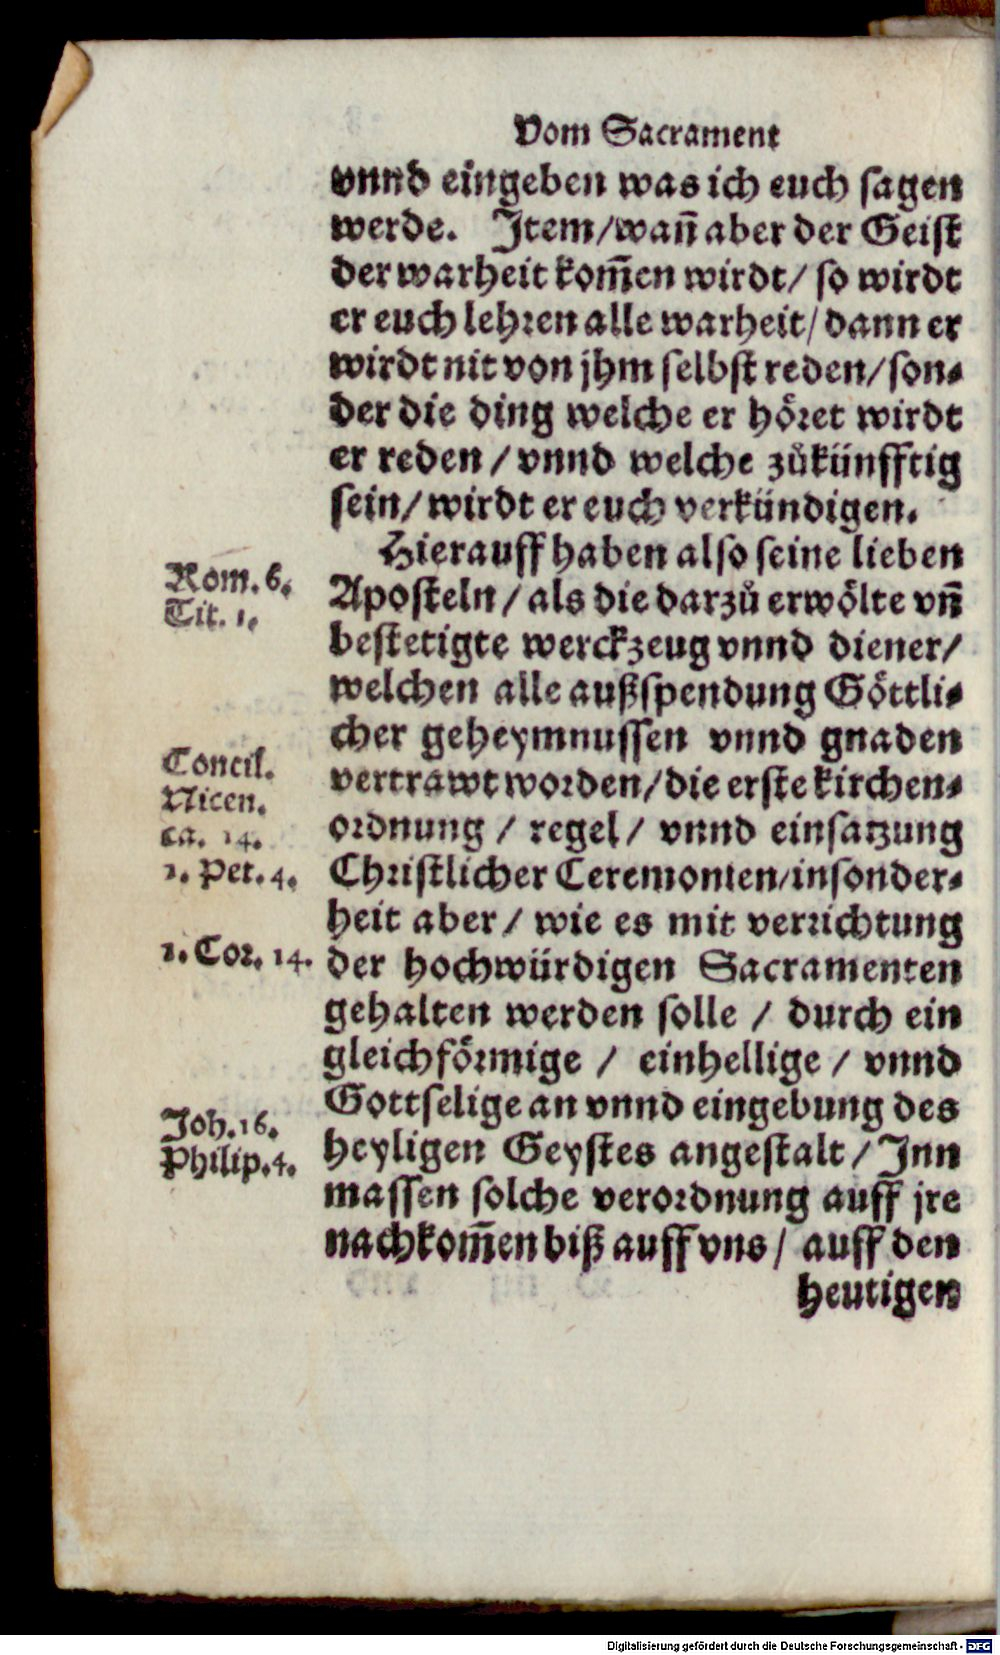 Vom Sacrament
vnnd eingeben was ich euch sagen
werde. Item/wañ aber der Geist
der warheit kom̃en wirdt/ so wirdt
er euch lehren alle warheit/ dann er
wirdt nit von jhm selbst reden/ son⸗
der die ding welche er höret wirdt
er reden / vnnd welche zůkünfftig
sein/ wirdt er euch verkündigen.
Hierauff haben also seine lieben
Rom. 6.
Tit. 1.
Aposteln / als die darzů erwölte vñ
bestetigte werckzeug vnnd diener/
welchen alle außspendung Göttli⸗
cher geheymnussen vnnd gnaden
Concil.
Nicen.
ca. 14.
vertrawt worden/ die erste kirchen⸗
ordnung / regel/ vnnd einsatzung
1. Pet. 4.
Christlicher Ceremonien/insonder⸗
heit aber / wie es mit verrichtung
1. Cor. 14.
der hochwürdigen Sacramenten
gehalten werden solle / durch ein
gleichförmige / einhellige / vnnd
Gottselige an vnnd eingebung des
Joh. 16.
Philip. 4.
heyligen Geystes angestalt / Inn
massen solche verordnung auff jre
nachkom̃en biß auff vns / auff den
heutigen
Digitalisierung gefördert durch die Deutsche Forschungsgemeinschaft - DFG